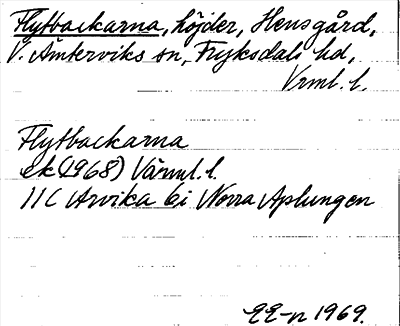 Flytbackarna, höjder, Hensgård,
V. Ämterviks sn, Fryksdals hd,
Vrml. l.
Flytbackarna
ek (1968) Värml. l.
11C Arvika 6i Norra Aplungen
EE-n 1969.